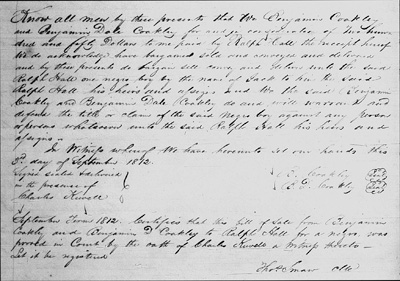 Know all men by these presents that We Benjamin Coakley
and Benjamin Dale Coakley for and in consideration of two hun
dred and fifty Dollars to me paid by Ralph Hall the receipt whereof
We do acknowledge have bargained sold and
and by these presents do bargain sell and deliver unto the said
Ralph Hall one negro boy by the name of Jack to him the said
Ralph Hall his heirs and assigns and We the said Benjamin
Coakley and Benjamin Dale Coakley do and will warrant and
defend the title or claim of the said Negro boy against any person
or persons whatsoever unto the said Ralph Hall his heirs and
assigns
In Witness whereof We have hereunto set our hands this
3d day of September 1812
Signed sealed & delivered
in the presence of
Charles Kewell
B. Coakley
B. D. Coakley
September Term 1812. Certifies that this bill of sale from Benjamin
Coakley and Benjamin D Coakley to Ralph Hall for a negro was
proved in Court by the oath of Charles Kewell a witness thereto
Let it be registered
Thos Smaw